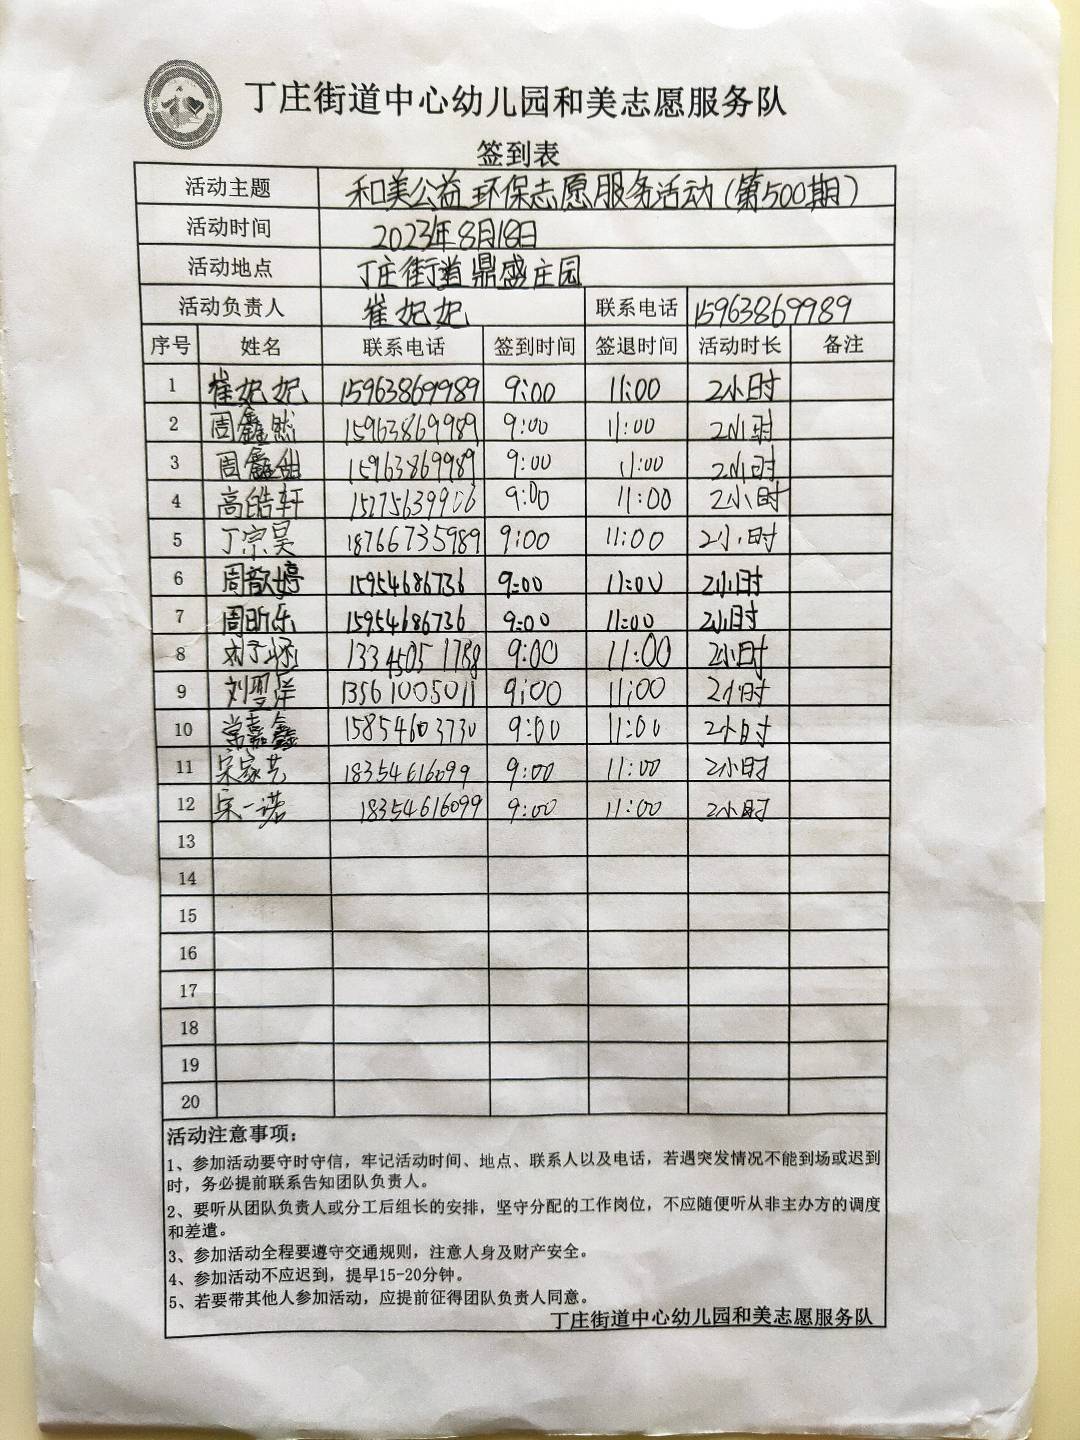 丁庄街道中心幼儿园和美志愿服务队
签到表
活动主题 和美公益环保志愿服务活动(第500期)
活动时间 2023年8月18日
活动地点 丁庄街道鼎盛庄园
活动负责人 崔妃妃 联系电话 15963869989
序号 姓名 联系电话 签到时间 签退时间 活动时长 备注
1 崔妃妃 15963869989 9:00 11:00 2小时
2 周鑫然 15963869989 9:00 11:00 2小时
3 周鑫 15963869989 9:00 11:00 2小时
4 高皓轩 15275639906 9:00 11:00 2小时
5 丁宗昊 18766735989 9:00 11:00 2小时
6 周歆婷 15954686736 9:00 11:00 2小时
7 周昕乐 15954686736 9:00 11:00 2小时
8 刘子 13345051788 9:00 11:00 2小时
9 刘翌洋 13561005011 9:00 11:00 2小时
10 常嘉鑫 15854603730 9:00 11:00 2小时
11 宋家艺 18354616099 9:00 11:00 2小时
12 宋一诺 18354616099 9:00 11:00 2小时
13
14
15
16
17
18
19
20
活动注意事项：
1、参加活动要守时守信，牢记活动时间、地点、联系人以及电话，若遇突发情况不能到场或迟到
时，务必提前联系告知团队负责人。
2、要听从团队负责人或分工后组长的安排，坚守分配的工作岗位，不应随便听从非主办方的调度
和差遣。
3、参加活动全程要遵守交通规则，注意人身及财产安全。
4、参加活动不应迟到，提早15-20分钟。
5、若要带其他人参加活动，应提前征得团队负责人同意。
丁庄街道中心幼儿园和美志愿服务队